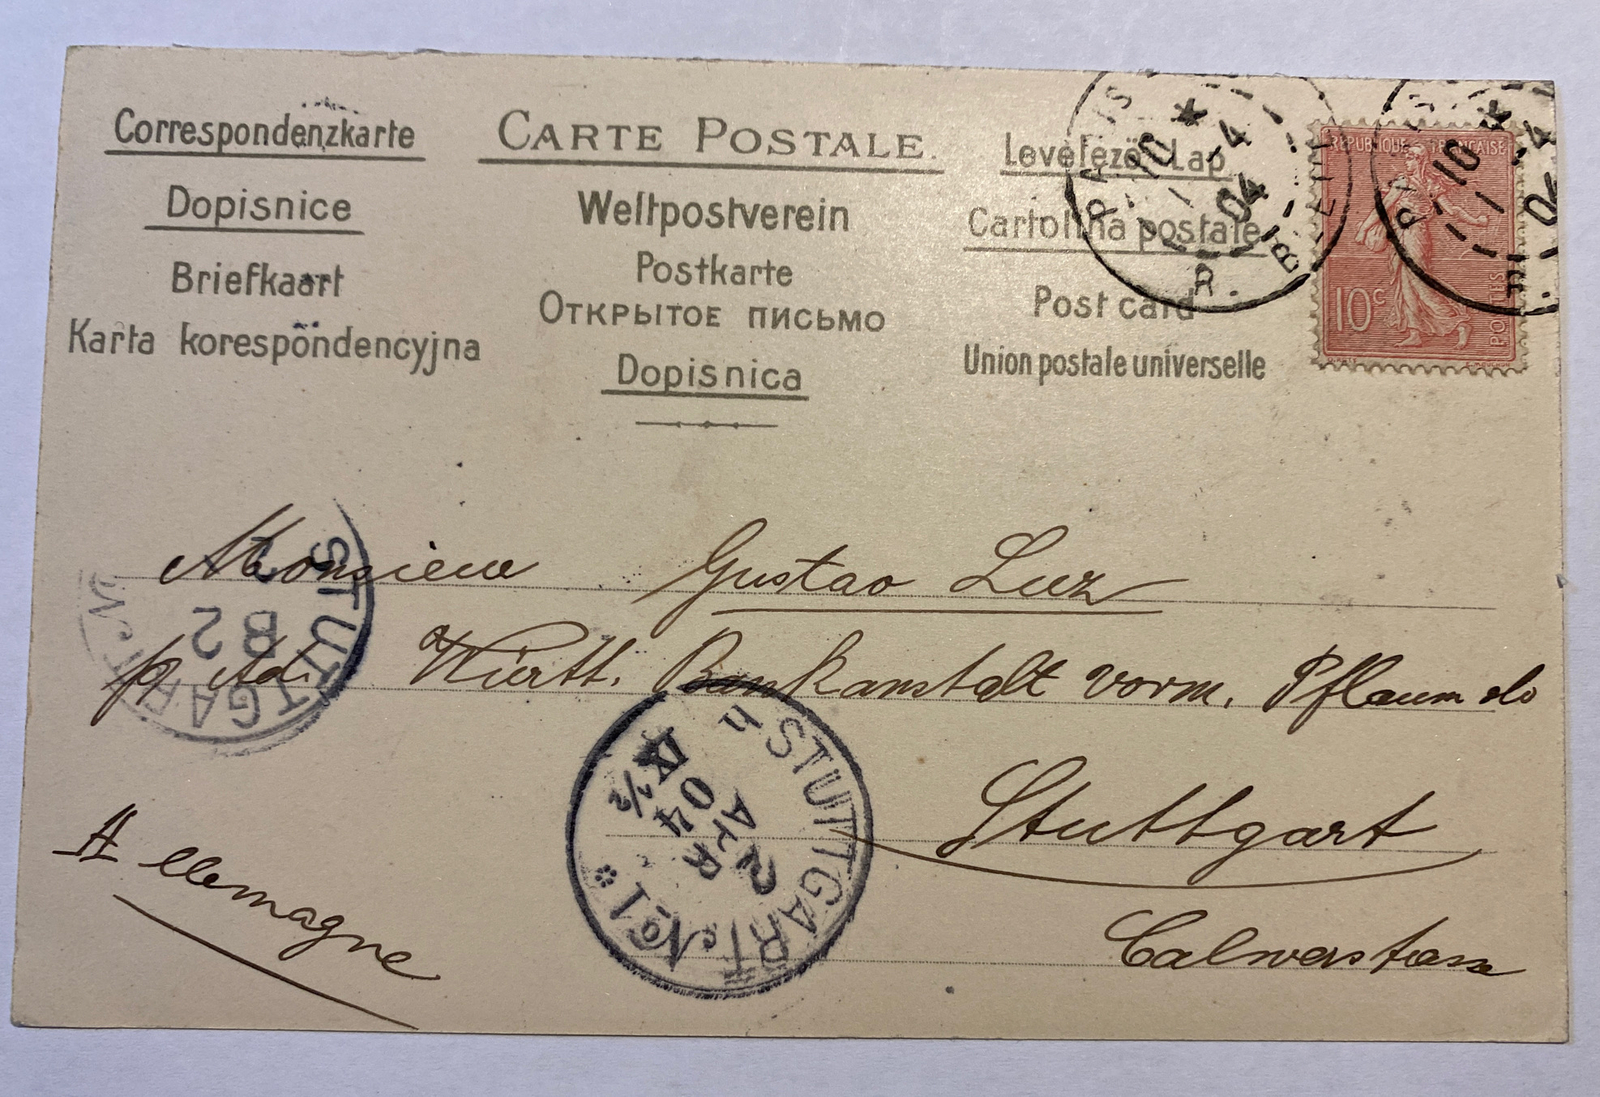 Correspondenzkarte
Dopisnice
Briefkaart
Karta korespondencyjna
CARTE POSTALE.
Weltpostverein
Postkarte
ОТКРЫТОЕ ПИСЬМО
Dopisnica
Levelező Lap
Cartolina postale
Post card
Union postale universelle
PARIS
10 * 1-4
04
R. BLEUE
REPUBLIQUE FRANÇAISE
10c
POSTES
Monsieur Gustav Luz
p. Ad. Württ. Bankanstalt vorm. Pflaum
Stuttgart
Calwerstrasse
Allemagne
STUTTGART No
B2
STUTTGART No 1
2 APR 04
IX ½